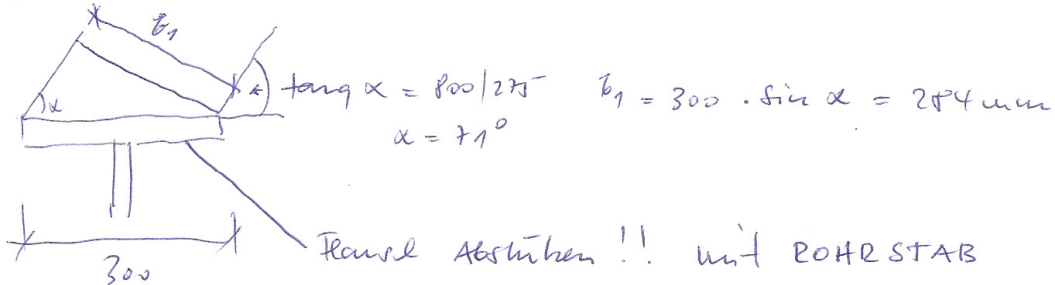 b₁
α
α tang α = 800/275 b₁ = 300 . sin α = 284 mm
α = 71°
300 Flansch Abstützen !! mit ROHRSTAB